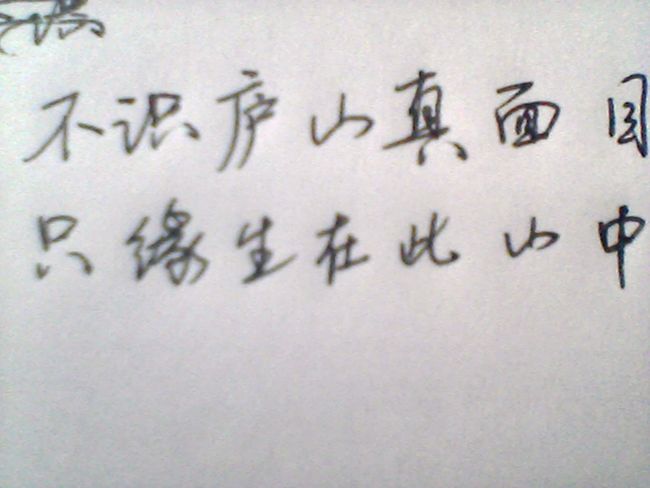 不识庐山真面目
只缘生在此山中